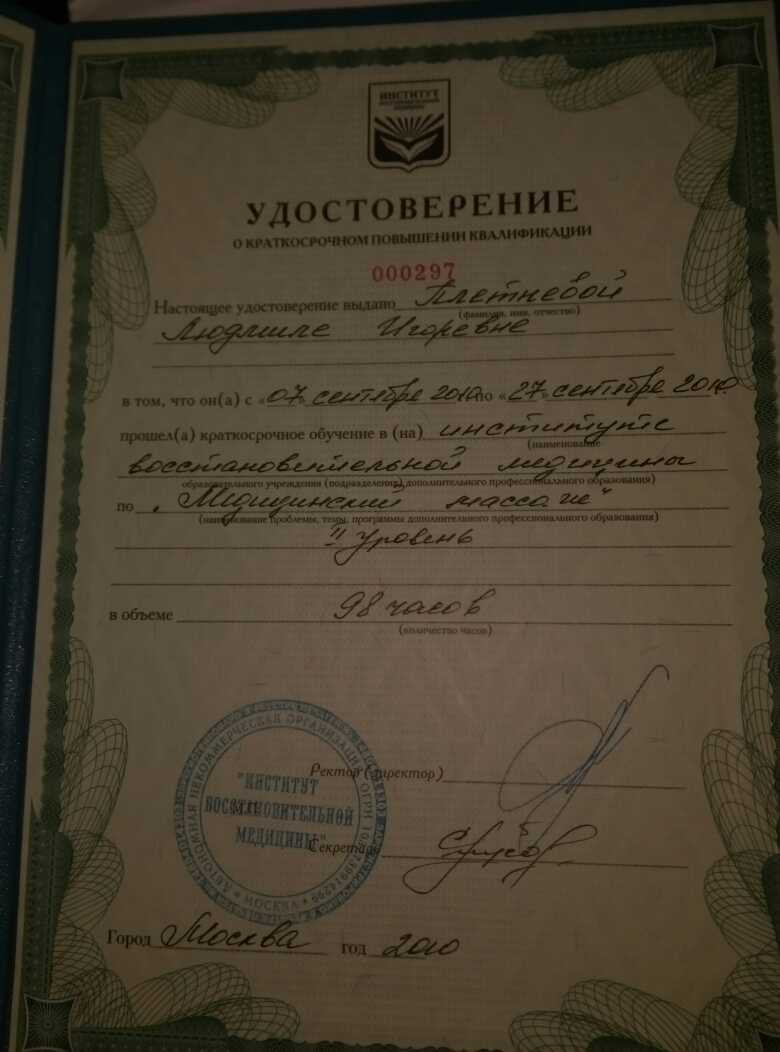 ИНСТИТУТ
УДОСТОВЕРЕНИЕ
О КРАТКОСРОЧНОМ ПОВЫШЕНИИ КВАЛИФИКАЦИИ
000297
Настоящее удостоверение выдано Плетневой
(фамилия, имя, отчество)
Людмиле Игоревне
в том, что он(а) с «07» сентября 2010 по «27» сентября 2010.
прошел(а) краткосрочное обучение в (на) институте
(наименование
восстановительной медицины
образовательного учреждения (подразделения) дополнительного профессионального образования)
по "Медицинский массаж"
(наименование проблемы, темы, программы дополнительного профессионального образования)
II уровень
в объеме 98 часов
(количество часов)
Ректор (директор)
Секретарь
АВТОНОМНАЯ НЕКОММЕРЧЕСКАЯ ОРГАНИЗАЦИЯ
"ИНСТИТУТ
ВОССТАНОВИТЕЛЬНОЙ
МЕДИЦИНЫ"
МОСКВА
Город Москва год 2010